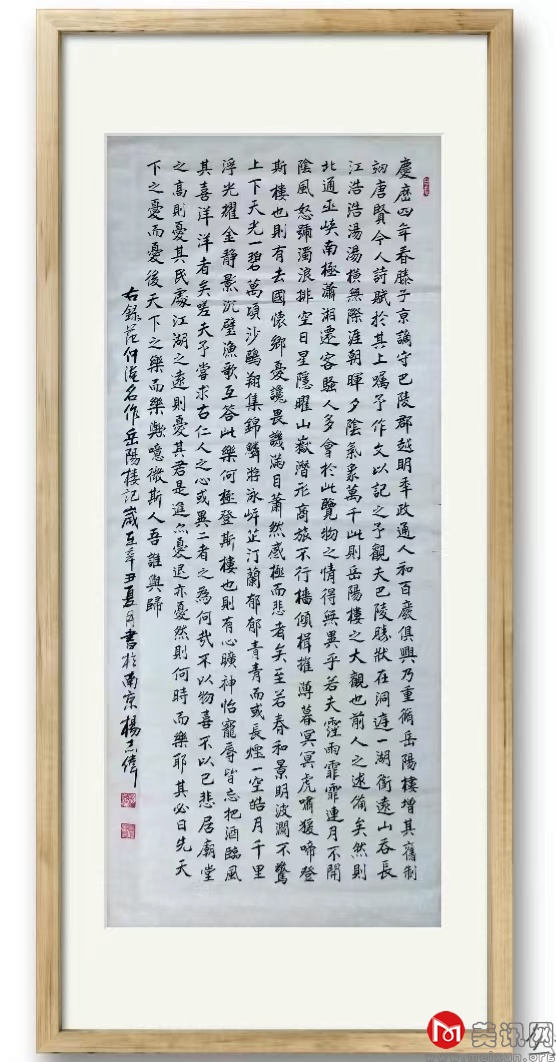 慶歷四年春滕子京謫守巴陵郡越明年政通人和百廢俱興乃重脩岳陽樓增其舊制
刻唐賢今人詩賦於其上屬予作文以記之予觀夫巴陵勝狀在洞庭一湖銜遠山吞長
江浩浩湯湯橫無際涯朝暉夕陰氣象萬千此則岳陽樓之大觀也前人之述備矣然則
北通巫峽南極瀟湘遷客騷人多會於此覽物之情得無異乎若夫霪雨霏霏連月不開
陰風怒彌濁浪排空日星隱曜山嶽潛形商旅不行檣傾楫摧薄暮冥冥虎嘯猨啼登
斯樓也則有去國懷鄉憂讒畏譏滿目蕭然感極而悲者矣至若春和景明波瀾不驚
上下天光一碧萬頃沙鷗翔集錦鱗將泳岸芷汀蘭郁郁青青而或長煙一空皓月千里
浮光耀金靜影沉璧漁歌互答此樂何極登斯樓也則有心曠神怡寵辱皆忘把酒臨風
其喜洋洋者矣嗟夫予嘗求古仁人之心或異二者之為何哉不以物喜不以己悲居廟堂
之高則憂其民處江湖之遠則憂其君是進亦憂退亦憂然則何時而樂耶其必曰先天
下之憂而憂後天下之樂而樂歟噫微斯人吾誰與歸
右錄范仲淹名作岳陽樓記歲在辛丑夏月書於南京楊志偉
美讯网
www.meixun.org